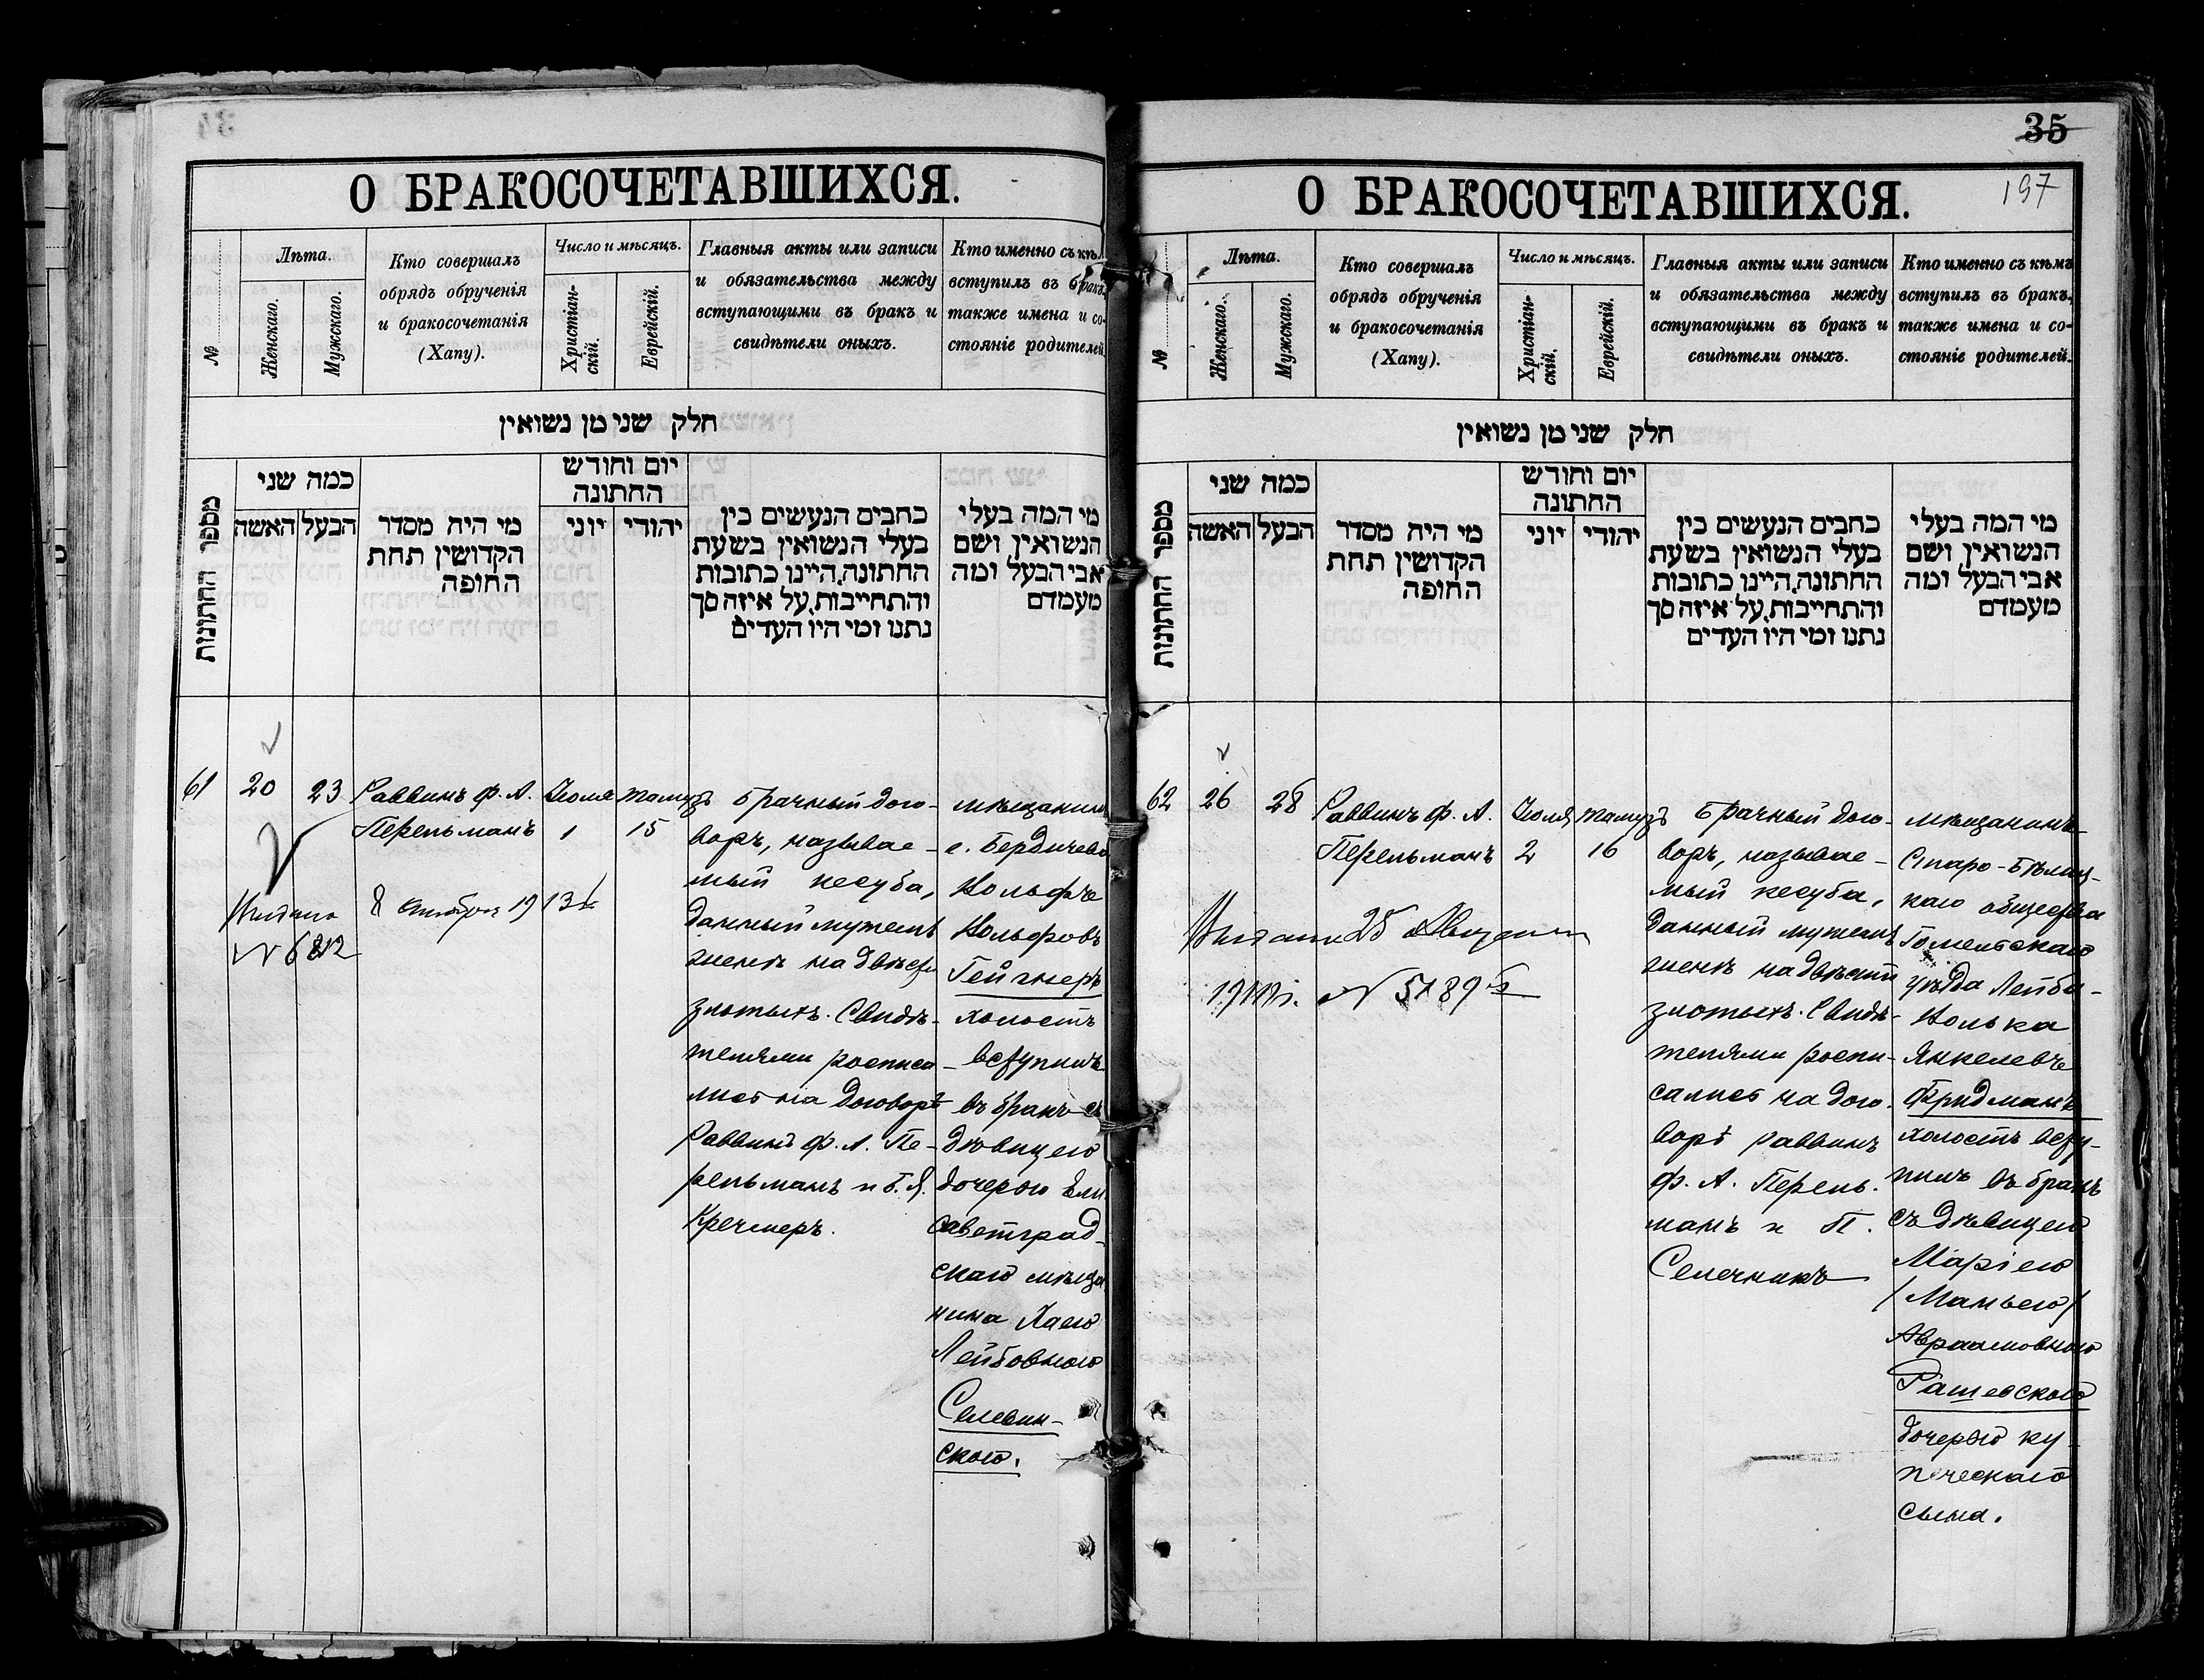 О БРАКОСОЧЕТАВШИХСЯ.
№
Лѣта.
Женскаго.
Мужскаго.
Кто совершалъ
обрядъ обрученія
и бракосочетанія
(Хапу).
Число и мѣсяцъ.
Христіан-
скій.
Еврейскій.
Главныя акты или записи
и обязательства между
вступающими въ бракъ и
свидѣтели оныхъ.
Кто именно съ кѣмъ
вступилъ въ бракъ.
также имена и со-
стояніе родителей.
חלק שני מן נשואין
מספר החתונות
כמה שני
האשה
הבעל
מי היה מסדר
הקדושין תחת
החופה
יום וחודש
החתונה
יוני
יהודי
כתבים הנעשים בין
בעלי הנשואין בשעת
החתונה, היינו כתובות
והתחייבות, על איזה סך
נתנו ומי היו העדים
מי המה בעלי
הנשואין ושם
אבי הבעל ומה
מעמדם
61
20
23
Раввинъ Ф. А.
Перельманъ
Іюля
1
Тамузъ
15
Брачный дого-
воръ, называе-
мый кесуба,
данный мужемъ
женѣ на двѣсти
злотыхъ. Свидѣ-
телями росписа-
лись на договорѣ
Раввинъ Ф. А. Пе-
рельманъ и Б. Я.
Кречмеръ.
мѣщанинъ
г. Бердичева
Вольфъ
Вольфовъ
Гейгнеръ
холостъ
вступилъ
въ бракъ съ
дѣвицею
дочерью Ели
саветград-
скаго мѣща
нина Хаею
Лейбовною
Селевин-
скою.
8 октября 1913 г.
№ 6812
35
197
О БРАКОСОЧЕТАВШИХСЯ.
№
Лѣта.
Женскаго.
Мужскаго.
Кто совершалъ
обрядъ обрученія
и бракосочетанія
(Хапу).
Число и мѣсяцъ.
Христіан-
скій.
Еврейскій.
Главныя акты или записи
и обязательства между
вступающими въ бракъ и
свидѣтели оныхъ.
Кто именно съ кѣмъ
вступилъ въ бракъ.
также имена и со-
стояніе родителей.
חלק שני מן נשואין
מספר החתונות
כמה שני
האשה
הבעל
מי היה מסדר
הקדושין תחת
החופה
יום וחודש
החתונה
יוני
יהודי
כתבים הנעשים בין
בעלי הנשואין בשעת
החתונה, היינו כתובות
והתחייבות, על איזה סך
נתנו ומי היו העדים
מי המה בעלי
הנשואין ושם
אבי הבעל ומה
מעמדם
62
26
28
Раввинъ Ф. А.
Перельманъ
Іюля
2
Тамузъ
16
Брачный дого-
воръ, называе-
мый кесуба,
данный мужемъ
женѣ на двѣсти
злотыхъ. Свидѣ-
телями роспи-
сались на дого-
ворѣ раввинъ
Ф. А. Перель-
манъ и П.
Селечникъ
мѣщанинъ
Старо-Бѣлиц-
каго общества
Гомельскаго
уѣзда Лейба-
Волька
Янкелевъ
Фридманъ
холостъ всту-
пилъ въ бракъ
съ дѣвицею
Маріею
/Маньею/
Авраамовною
Рашевскою
дочерью ку-
печескаго
сына.
25 Августа
№ 5189